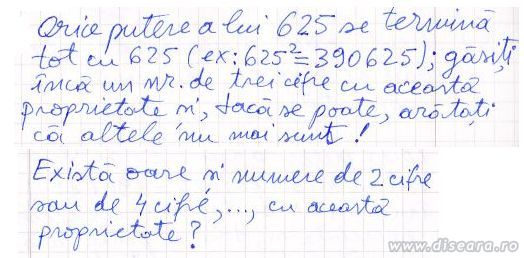 Orice putere a lui 625 se termină
tot cu 625 (ex: 625²=390625); găsiți
încă un nr. de trei cifre cu această
proprietate și, dacă se poate, arătați
că altele nu mai sunt!
Există oare și numere de 2 cifre
sau de 4 cifre, ..., cu această
proprietate?
www.diseara.ro